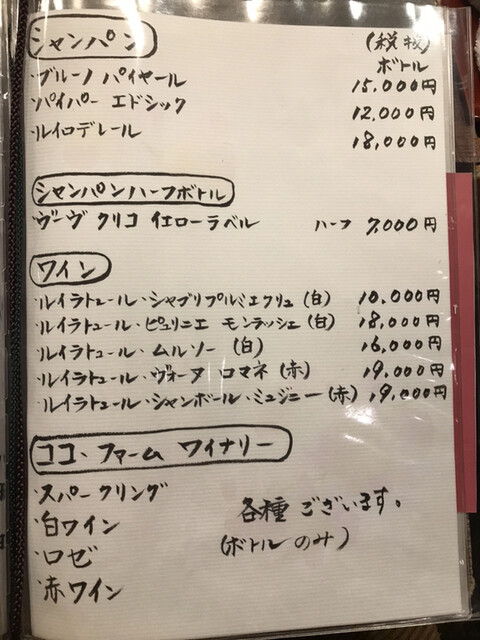 シャンパン (税抜)
ボトル
・ブルーノ パイヤール 15,000円
・パイパー エドシック 12,000円
・ルイロデレール 18,000円
シャンパンハーフボトル
・ヴーヴ クリコ イエローラベル ハーフ 7,000円
ワイン
・ルイラトュール・シャブリプルミエクリュ (白) 10,000円
・ルイラトュール・ピュリニエ モンラッシェ (白) 18,000円
・ルイラトュール・ムルソー (白) 16,000円
・ルイラトュール・ヴォーヌ ロマネ (赤) 19,000円
・ルイラトュール・シャンボール・ミュジニー (赤) 19,000円
ココ・ファーム ワイナリー
・スパークリング
・白ワイン
・ロゼ
・赤ワイン
各種ございます。
(ボトルのみ)